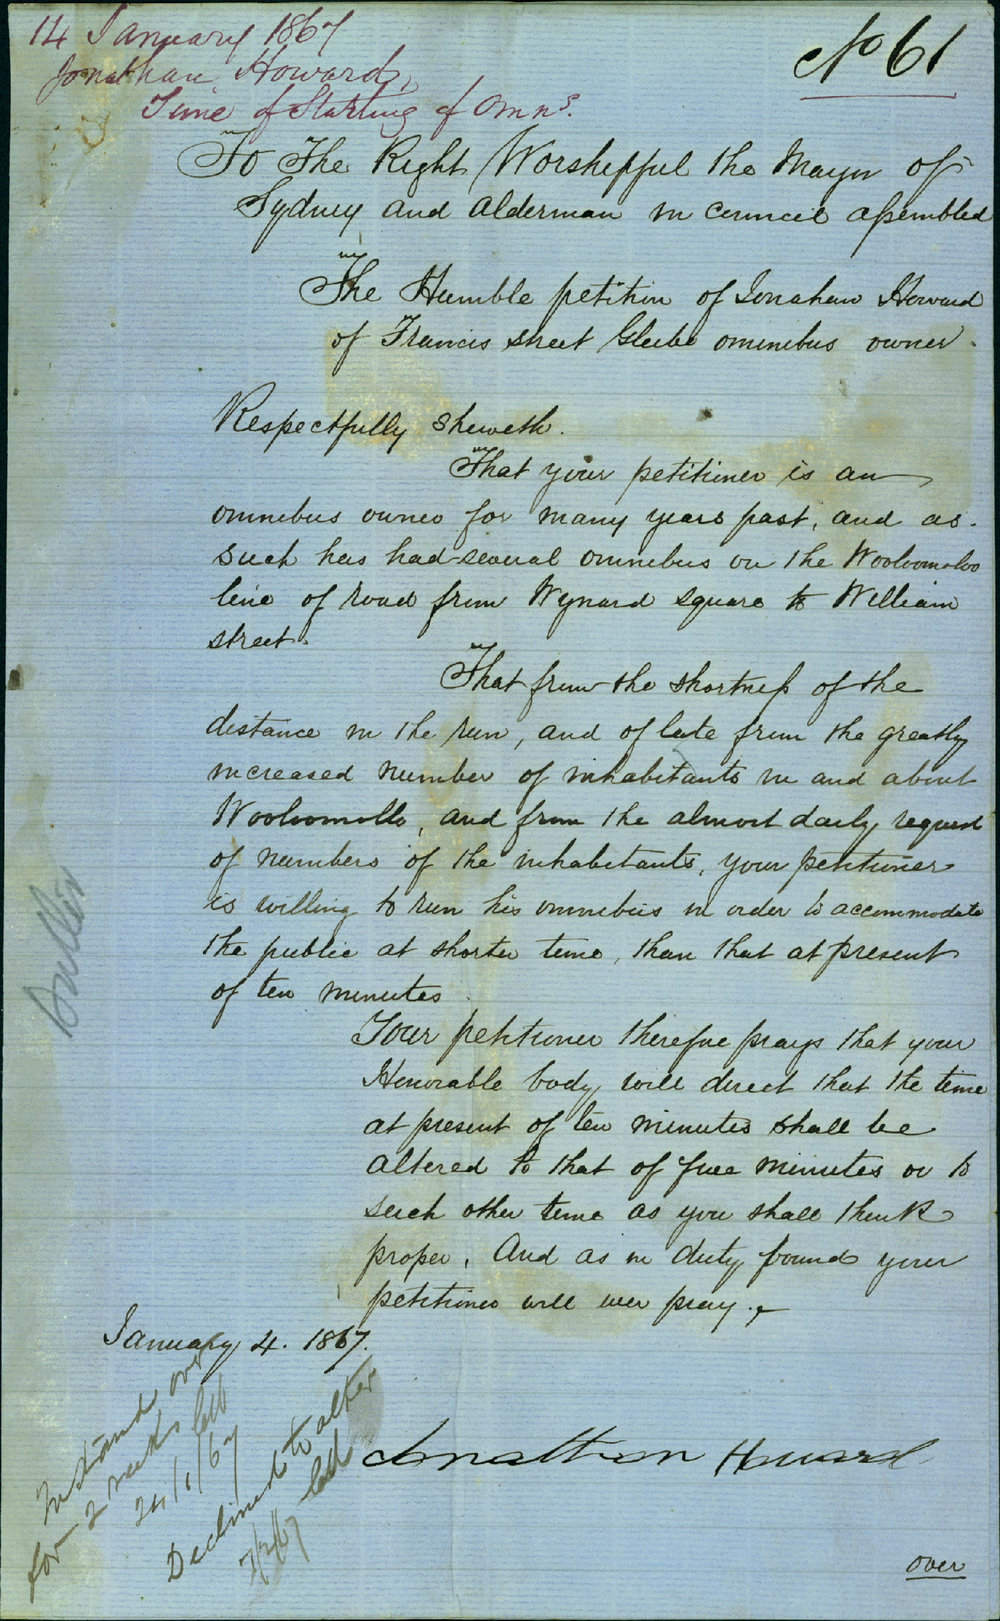 14 January 1867
No 61
Jonathan Howard,
Time of Starting of Omns.
To The Right Worshipful the Mayor of
Sydney and Alderman in Council assembled
The Humble petition of Jonahan Howard
of Francis street Glebe ominibus owner.
Respectfully sheweth.
That your petitioner is an
omnibus owner for many years past, and as
such has had several omnibus on the Wooloomoloo
line of road from Wynard square to William
street.
That from the shortness of the
distance in the run, and of late from the greatly
increased number of inhabitants in and about
Wooloomollo, and from the almost daily request
of numbers of the inhabitants, your petitioner
is willing to run his omnibus in order to accommodate
the public at shorter time, than that at present
of ten minutes
Your petitioner therefore prays that your
Honorable body will direct that the time
at present of ten minutes shall be
altered to that of five minutes or to
such other time as you shall think
proper. And as in duty bound your
petitioner will ever pray.
January 4. 1867.
Jonathan Howard
To stand over
for 2 weeks
24/1/67
Declined to alter
7/2/67
over